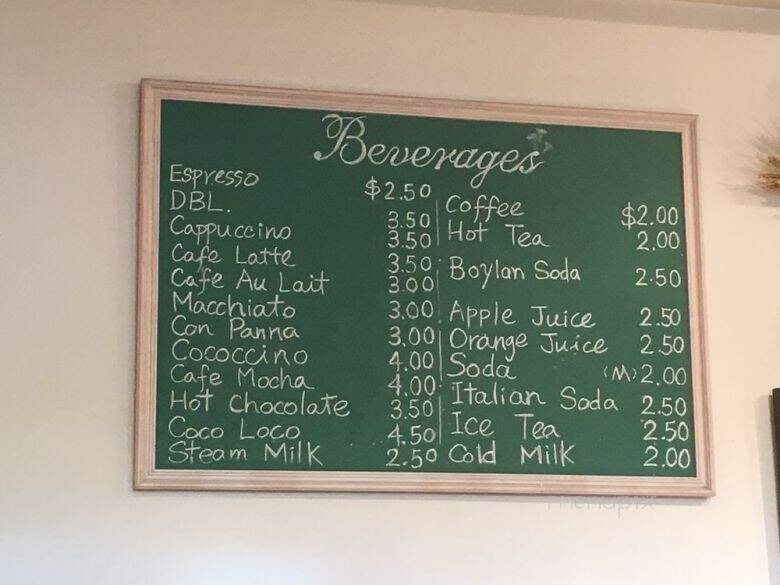 Beverages
Espresso $2.50
DBL. 3.50
Cappuccino 3.50
Cafe Latte 3.50
Cafe Au Lait 3.00
Macchiato 3.00
Con Panna 3.00
Cococcino 4.00
Cafe Mocha 4.00
Hot Chocolate 3.50
Coco Loco 4.50
Steam Milk 2.50
Coffee $2.00
Hot Tea 2.00
Boylan Soda 2.50
Apple Juice 2.50
Orange Juice 2.50
Soda (M) 2.00
Italian Soda 2.50
Ice Tea 2.50
Cold Milk 2.00
menupix